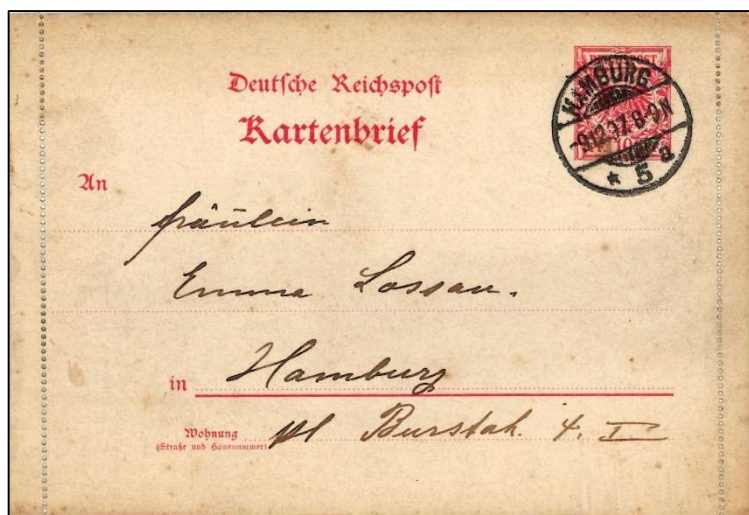 Deutsche Reichspost
Kartenbrief
HAMBURG
-9.12.97. 8-9N
* 5 a
10
An
Fräulein
Emma Lossau.
in Hamburg
Wohnung
(Straße und Hausnummer)
Burstah. 4. I